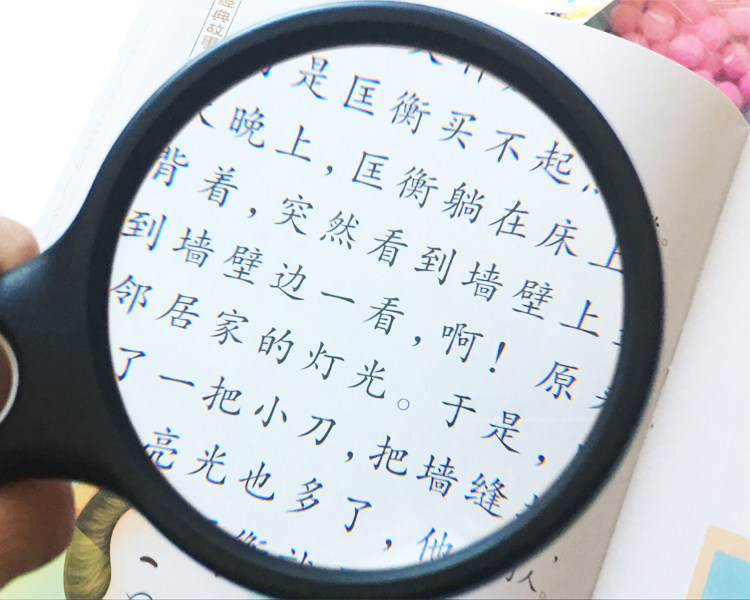 经典故事
是匡衡买不起
晚上，匡衡躺在床上
背着，突然看到墙壁上
到墙壁边一看，啊！原
邻居家的灯光。于是，
了一把小刀，把墙缝
亮光也多了，他
人。